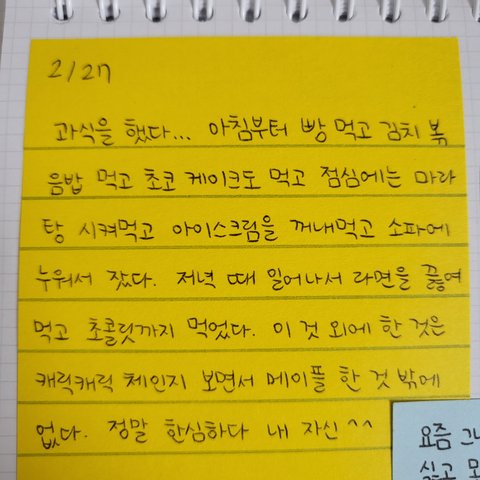 2/27
과식을 했다... 아침부터 빵 먹고 김치 볶
음밥 먹고 초코 케이크도 먹고 점심에는 마라
탕 시켜먹고 아이스크림을 꺼내먹고 소파에
누워서 잤다. 저녁 때 일어나서 라면을 끓여
먹고 초콜릿까지 먹었다. 이 것 외에 한 것은
캐릭캐릭 체인지 보면서 메이플 한 것 밖에
없다. 정말 한심하다 내 자신 ^^
요즘
싶고